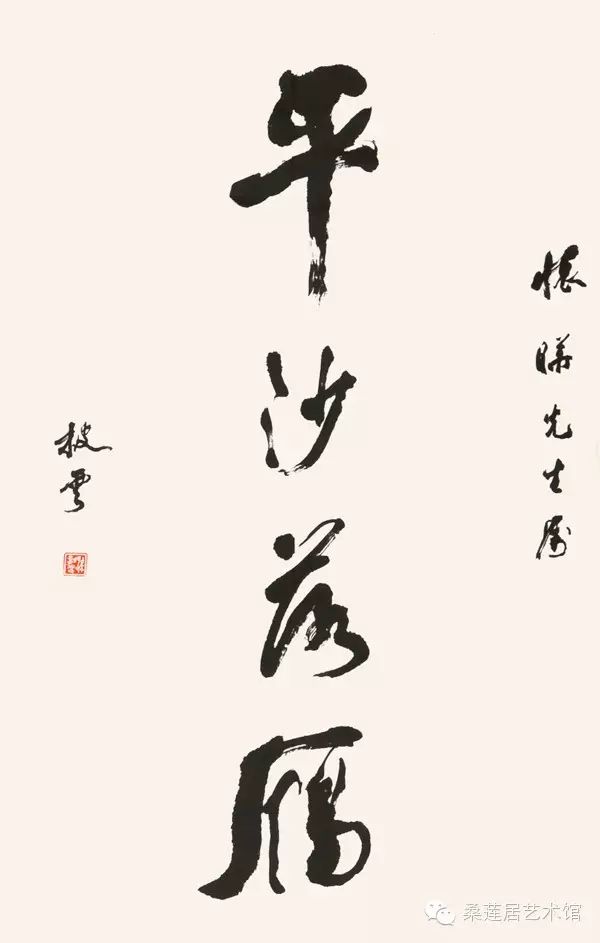 平沙落雁
懷暐先生属
披雲
桑莲居艺术馆